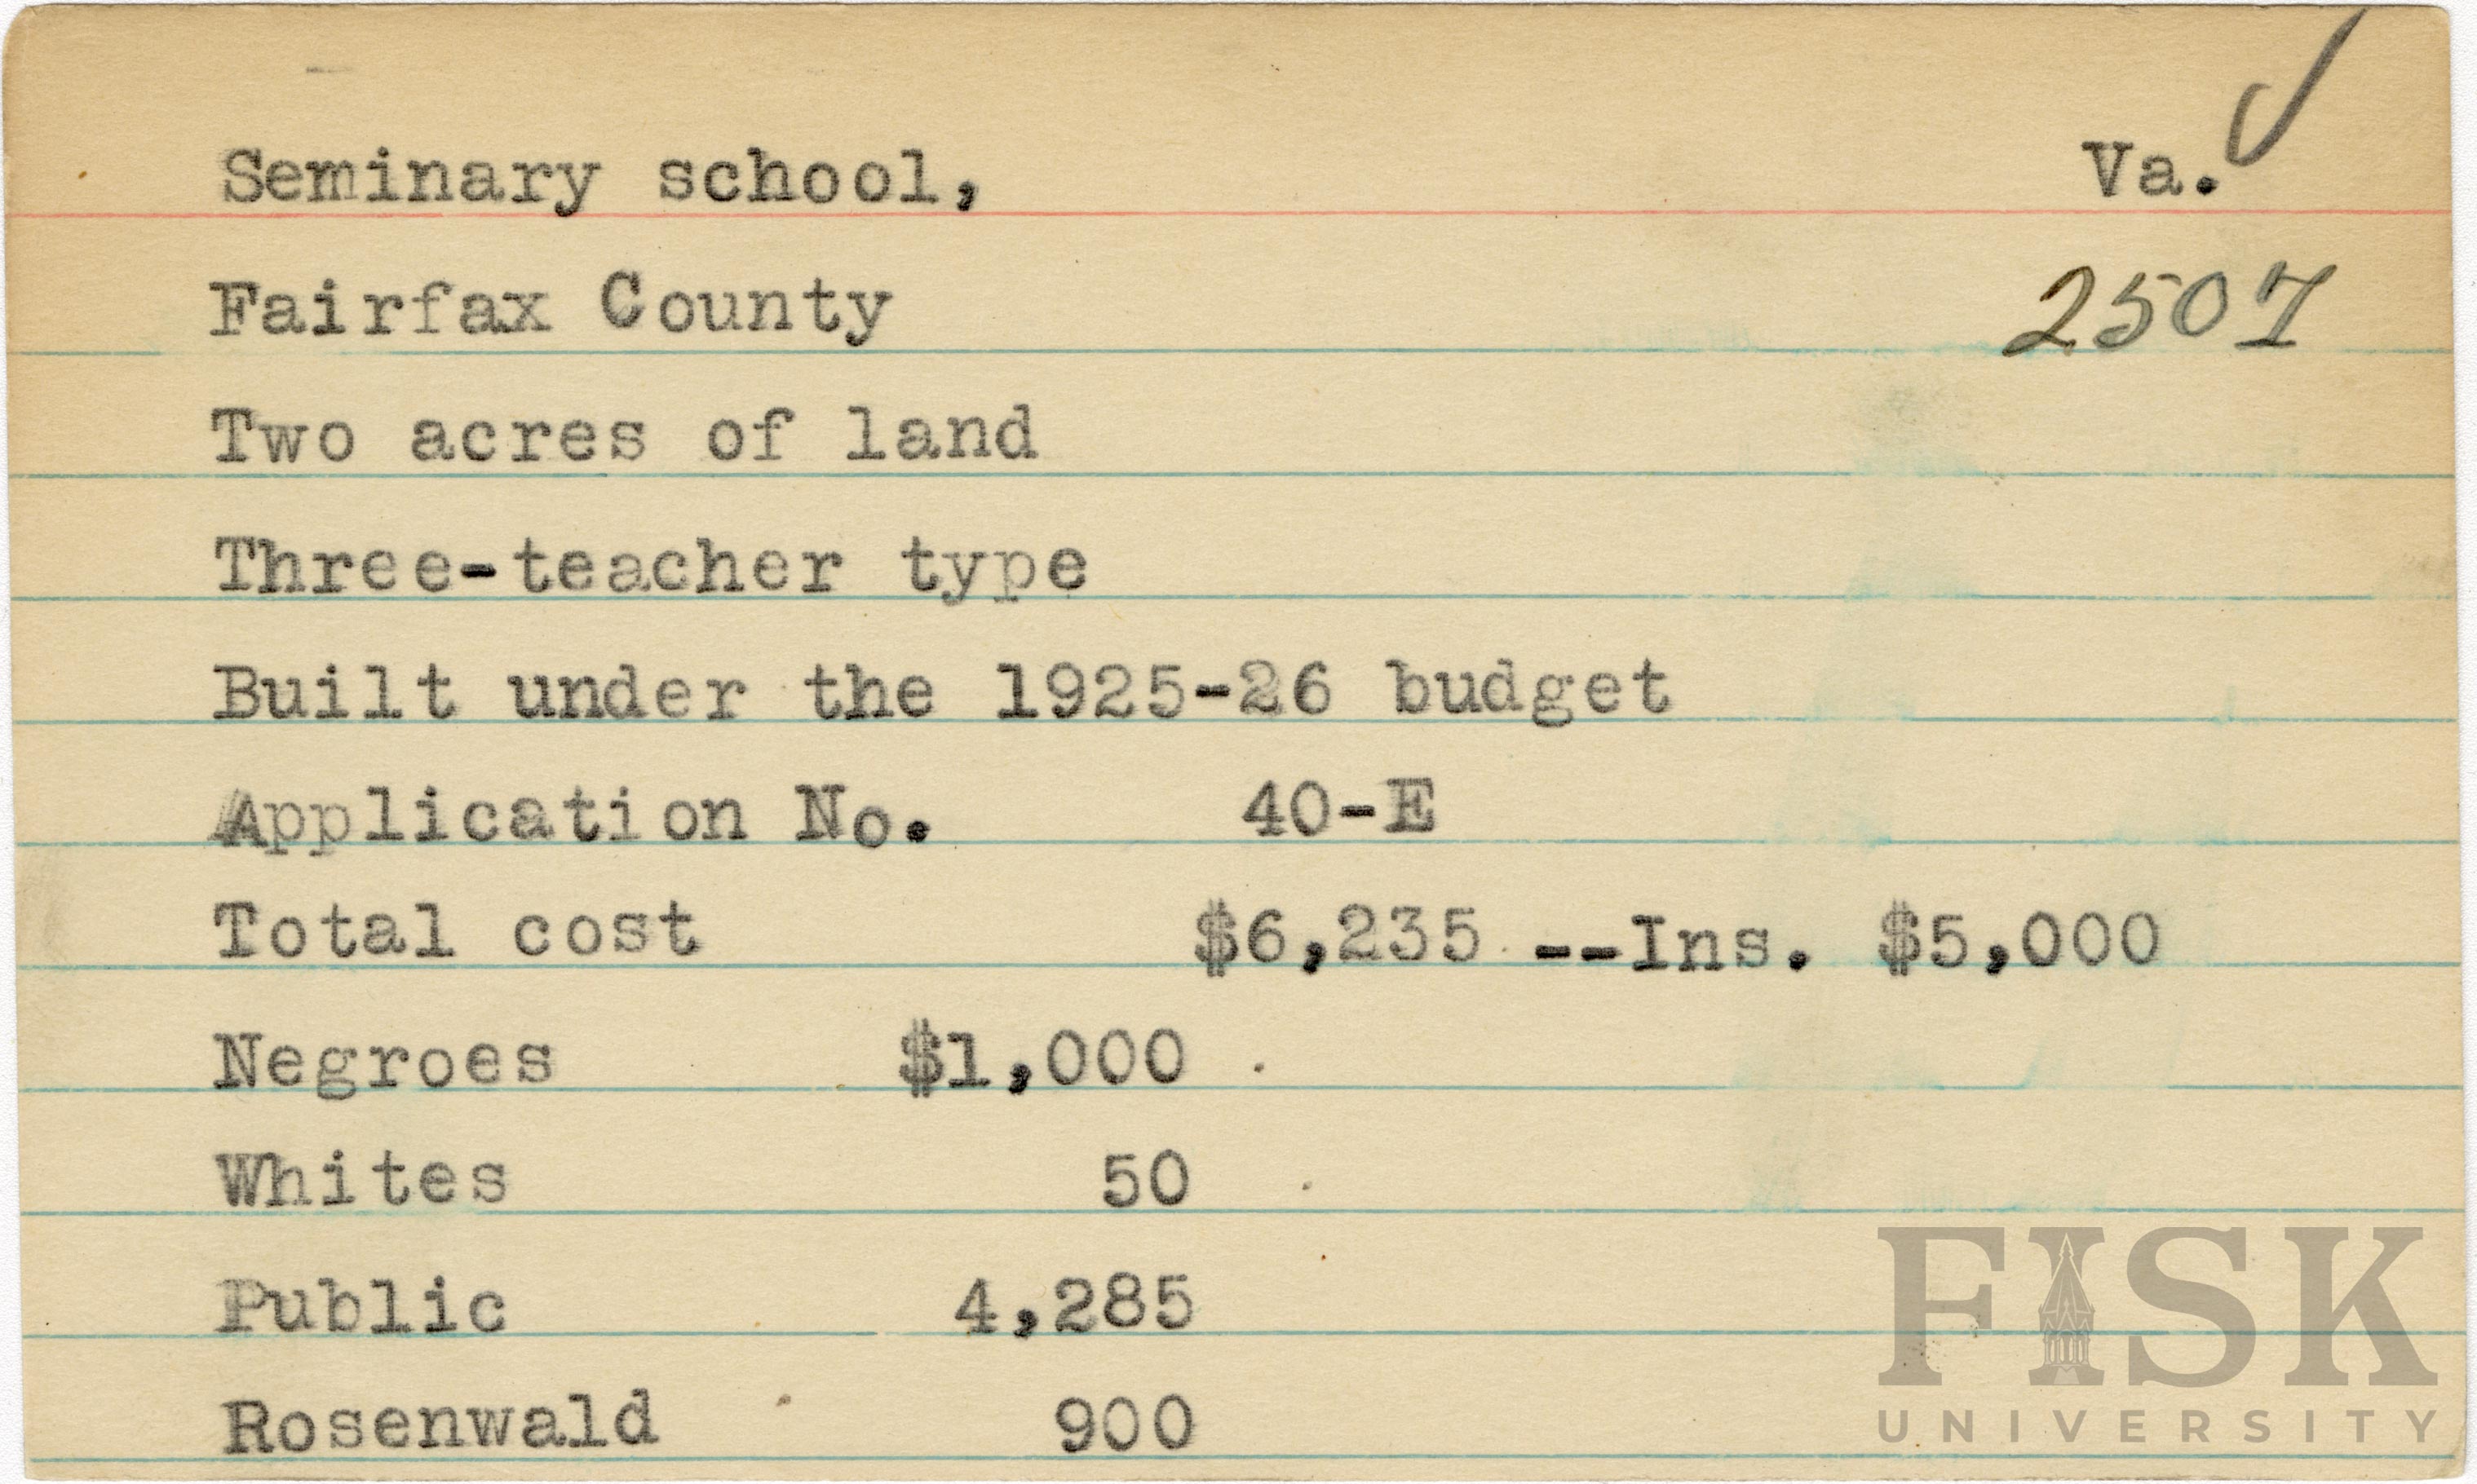 Seminary school, Va.
Fairfax County 2507
Two acres of land
Three-teacher type
Built under the 1925-26 budget
Application No. 40-E
Total cost $6,235 --Ins. $5,000
Negroes $1,000
Whites 50
Public 4,285
Rosenwald 900
FISK
UNIVERSITY